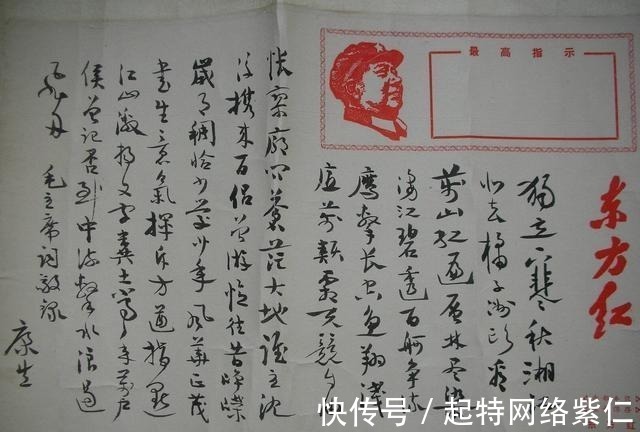 最高指示
东方红
獨立寒秋湘江
北去橘子洲頭看
萬山红遍層林尽染
漫江碧透百舸争流
鷹擊长空魚翔浅
底萬類霜天競自由
悵寥廓问蒼茫大地谁主沈
浮携来百侣曾游忆往昔峥嵘
歲月稠恰同学少年风華正茂
書生意氣揮斥方遒指點
江山激扬文字糞土当年萬户
侯曾记否到中流擊水浪遏
飛舟 毛主席词敬录
康生
快传号/起特网络紫仁